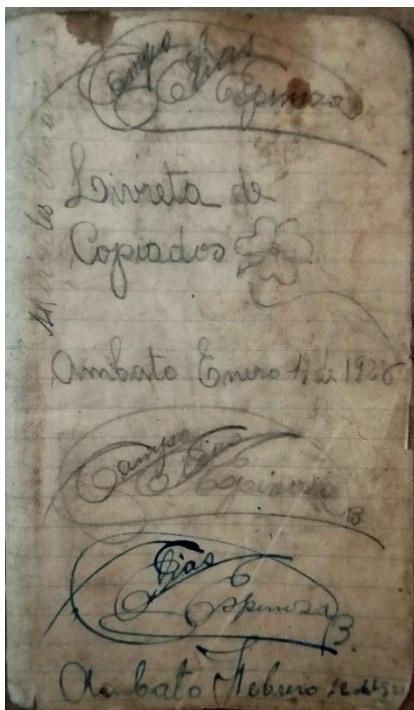 Campo Elias
Espinoza
Livreta de
Copiados
Ambato Enero 19 de 1926
Campo Elias
Espinoza
B
Elias
Espinoza B.
Ambato Febrero